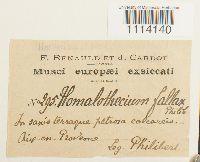 MISSOURI
1114140
F. RENAULD et J. CARDOT
Musci europæi exsiccati
No 295. Homalothecium fallax
Philib.
In saxis terraque petrosa calcareis.
Aix-en-Provence
Leg. Philibert